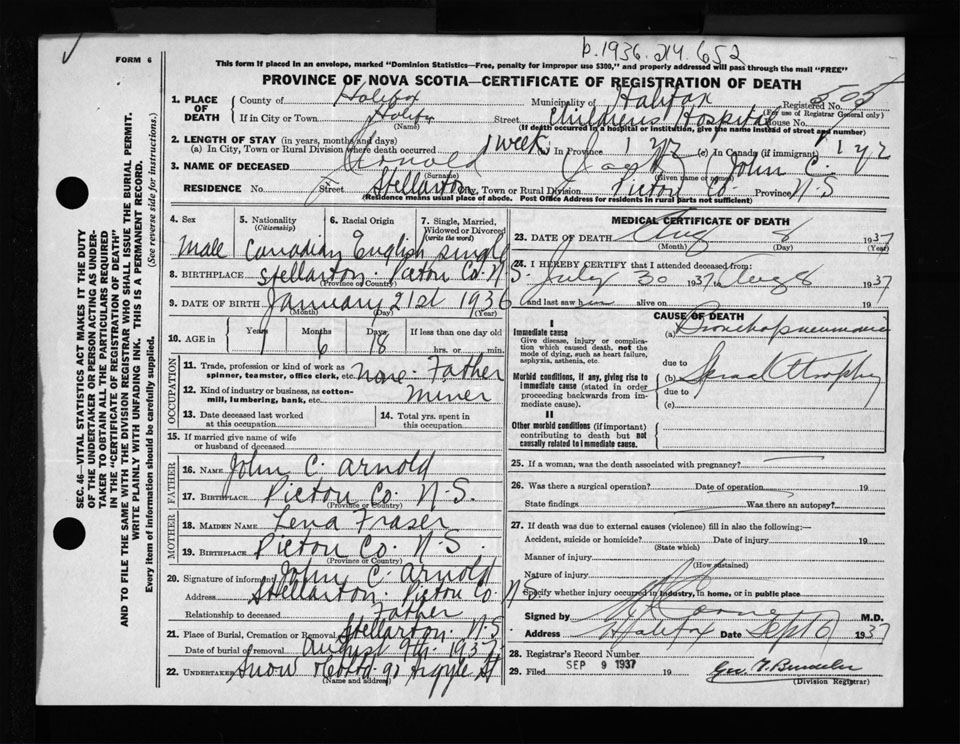 p. 1936. 214 652
FORM 6
This form if placed in an envelope, marked "Dominion Statistics—Free, penalty for improper use $300," and properly addressed will pass through the mail "FREE"
PROVINCE OF NOVA SCOTIA—CERTIFICATE OF REGISTRATION OF DEATH
1. PLACE OF DEATH County of Halifax Municipality of Halifax Registered No. 505
(For use of Registrar General only)
If in City or Town Halifax Street Childrens Hospital House No.
(Name) (If death occurred in a hospital or institution, give the name instead of street and number)
2. LENGTH OF STAY (in years, months and days)
(a) In City, Town or Rural Division where death occurred 1 week (b) In Province 1 yr (c) In Canada (if immigrant) 1 yr
3. NAME OF DECEASED Arnold John C.
(Surname) (Given name or names)
RESIDENCE No. Street Stellarton City, Town or Rural Division Pictou Co. Province N.S
(Residence means usual place of abode. Post Office Address for residents in rural parts not sufficient)
4. Sex 5. Nationality 6. Racial Origin 7. Single, Married, Widowed or Divorced
(Citizenship) (write the word)
Male Canadian English Single
8. BIRTHPLACE Stellarton Pictou Co. N.S.
(Province or Country)
9. DATE OF BIRTH January 21st 1936
(Month) (Day) (Year)
10. AGE in Years Months Days If less than one day old
1 6 18 hrs. or min.
OCCUPATION
11. Trade, profession or kind of work as spinner, teamster, office clerk, etc. None - Father
12. Kind of industry or business, as cotton-mill, lumbering, bank, etc. Miner
13. Date deceased last worked at this occupation
14. Total yrs. spent in this occupation
15. If married give name of wife or husband of deceased
FATHER
16. NAME John C. Arnold
17. BIRTHPLACE Pictou Co. N.S.
(Province or Country)
MOTHER
18. MAIDEN NAME Lena Fraser
19. BIRTHPLACE Pictou Co. N.S.
(Province or Country)
20. Signature of informant John C. Arnold
Address Stellarton Pictou Co. N.S
Relationship to deceased Father
21. Place of Burial, Cremation or Removal Stellarton N.S
Date of burial or removal August 9th 1937
22. UNDERTAKER Snow & Co Ltd. 90 Argyle St
(Name and address)
MEDICAL CERTIFICATE OF DEATH
23. DATE OF DEATH Aug 8 1937
(Month) (Day) (Year)
24. I HEREBY CERTIFY that I attended deceased from:
July 30 1937 to Aug 8 1937
and last saw h im alive on 19
CAUSE OF DEATH
I
Immediate cause
Give disease, injury or complication which caused death, not the mode of dying, such as heart failure, asphyxia, asthenia, etc.
(a) Bronchopneumonia
due to
Morbid conditions, if any, giving rise to immediate cause (stated in order proceeding backwards from immediate cause).
(b) Atrophy
due to
(c)
II
Other morbid conditions (if important) contributing to death but not causally related to immediate cause.
25. If a woman, was the death associated with pregnancy?
26. Was there a surgical operation? Date of operation 19
State findings Was there an autopsy?
27. If death was due to external causes (violence) fill in also the following:—
Accident, suicide or homicide? Date of injury 19
(State which)
Manner of injury
(How sustained)
Nature of injury
Specify whether injury occurred in industry, in home, or in public place
Signed by M.D.
Address Halifax Date Sept 6 1937
28. Registrar's Record Number
29. Filed SEP 9 1937 19
(Division Registrar)
SEC. 46—VITAL STATISTICS ACT MAKES IT THE DUTY
OF THE UNDERTAKER OR PERSON ACTING AS UNDER-
TAKER TO OBTAIN ALL THE PARTICULARS REQUIRED
IN THE "CERTIFICATE OF REGISTRATION OF DEATH"
AND TO FILE THE SAME WITH THE DIVISION REGISTRAR WHO SHALL ISSUE THE BURIAL PERMIT.
WRITE PLAINLY WITH UNFADING INK. THIS IS A PERMANENT RECORD.
Every item of information should be carefully supplied. (See reverse side for instructions.)